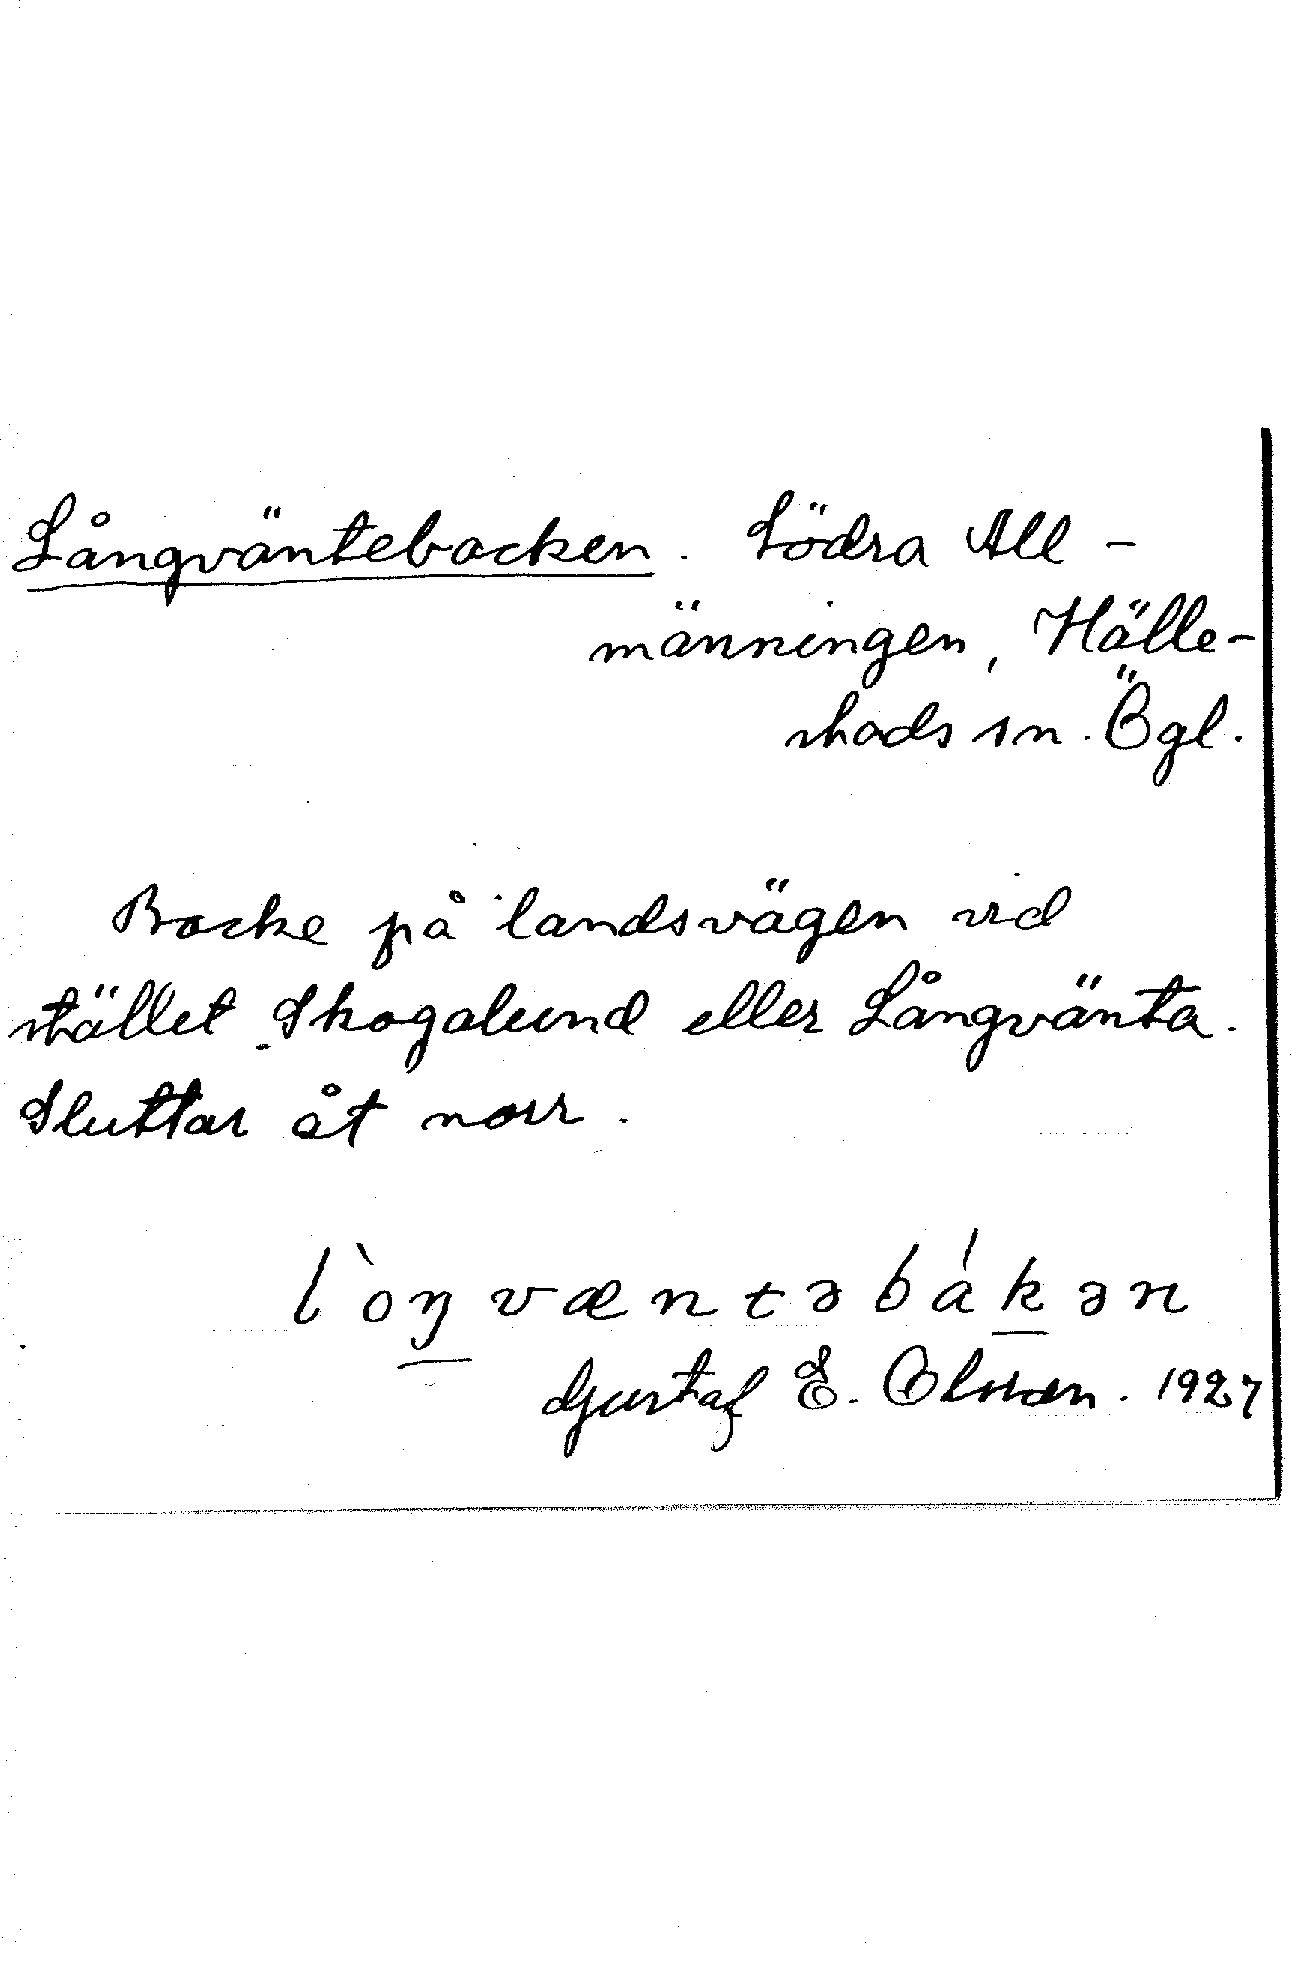 Långväntebacken. Södra All-
männingen, Hälle-
stads sn. Ögl.
Backe på landsvägen vid
stället Skogalund eller Långvänta.
Sluttar åt norr.
l`oŋvæntəbákən
Gustaf E. Olsson. 1927